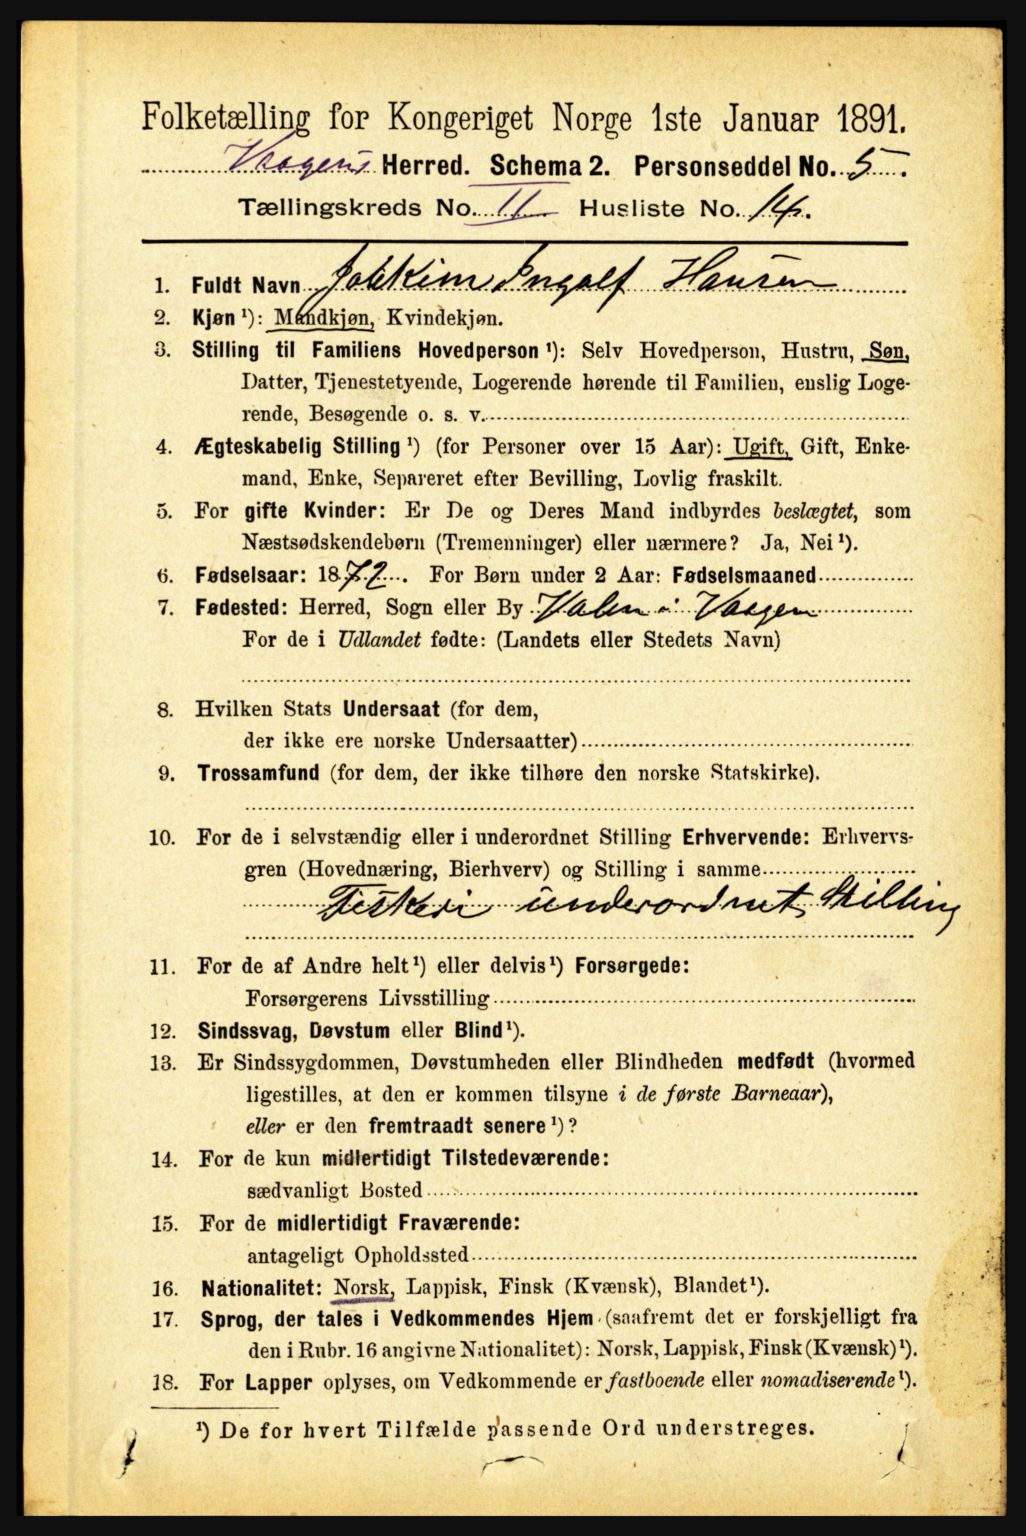 Folketælling for Kongeriget Norge 1ste Januar 1891.
Vaagens Herred. Schema 2. Personseddel No. 5.
Tællingskreds No. 11 Husliste No. 14.
1. Fuldt Navn Johkim Ingolf Hansen
2. Kjøn ¹): Mandkjøn, Kvindekjøn.
3. Stilling til Familiens Hovedperson ¹): Selv Hovedperson, Hustru, Søn,
Datter, Tjenestetyende, Logerende hørende til Familien, enslig Loge-
rende, Besøgende o. s. v.
4. Ægteskabelig Stilling ¹) (for Personer over 15 Aar): Ugift, Gift, Enke-
mand, Enke, Separeret efter Bevilling, Lovlig fraskilt.
5. For gifte Kvinder: Er De og Deres Mand indbyrdes beslægtet, som
Næstsødskendebørn (Tremenninger) eller nærmere? Ja, Nei ¹).
6. Fødselsaar: 1872. For Børn under 2 Aar: Fødselsmaaned
7. Fødested: Herred, Sogn eller By Valen i Vaagen
For de i Udlandet fødte: (Landets eller Stedets Navn)
8. Hvilken Stats Undersaat (for dem,
der ikke ere norske Undersaatter)
9. Trossamfund (for dem, der ikke tilhøre den norske Statskirke).
10. For de i selvstændig eller i underordnet Stilling Erhvervende: Erhvervs-
gren (Hovednæring, Bierhverv) og Stilling i samme
Fiskeri underordnet Stilling
11. For de af Andre helt ¹) eller delvis ¹) Forsørgede:
Forsørgerens Livsstilling
12. Sindssvag, Døvstum eller Blind ¹).
13. Er Sindssygdommen, Døvstumheden eller Blindheden medfødt (hvormed
ligestilles, at den er kommen tilsyne i de første Barneaar),
eller er den fremtraadt senere ¹)?
14. For de kun midlertidigt Tilstedeværende:
sædvanligt Bosted
15. For de midlertidigt Fraværende:
antageligt Opholdssted
16. Nationalitet: Norsk, Lappisk, Finsk (Kvænsk), Blandet ¹).
17. Sprog, der tales i Vedkommendes Hjem (saafremt det er forskjelligt fra
den i Rubr. 16 angivne Nationalitet): Norsk, Lappisk, Finsk (Kvænsk) ¹).
18. For Lapper oplyses, om Vedkommende er fastboende eller nomadiserende ¹).
¹) De for hvert Tilfælde passende Ord understreges.